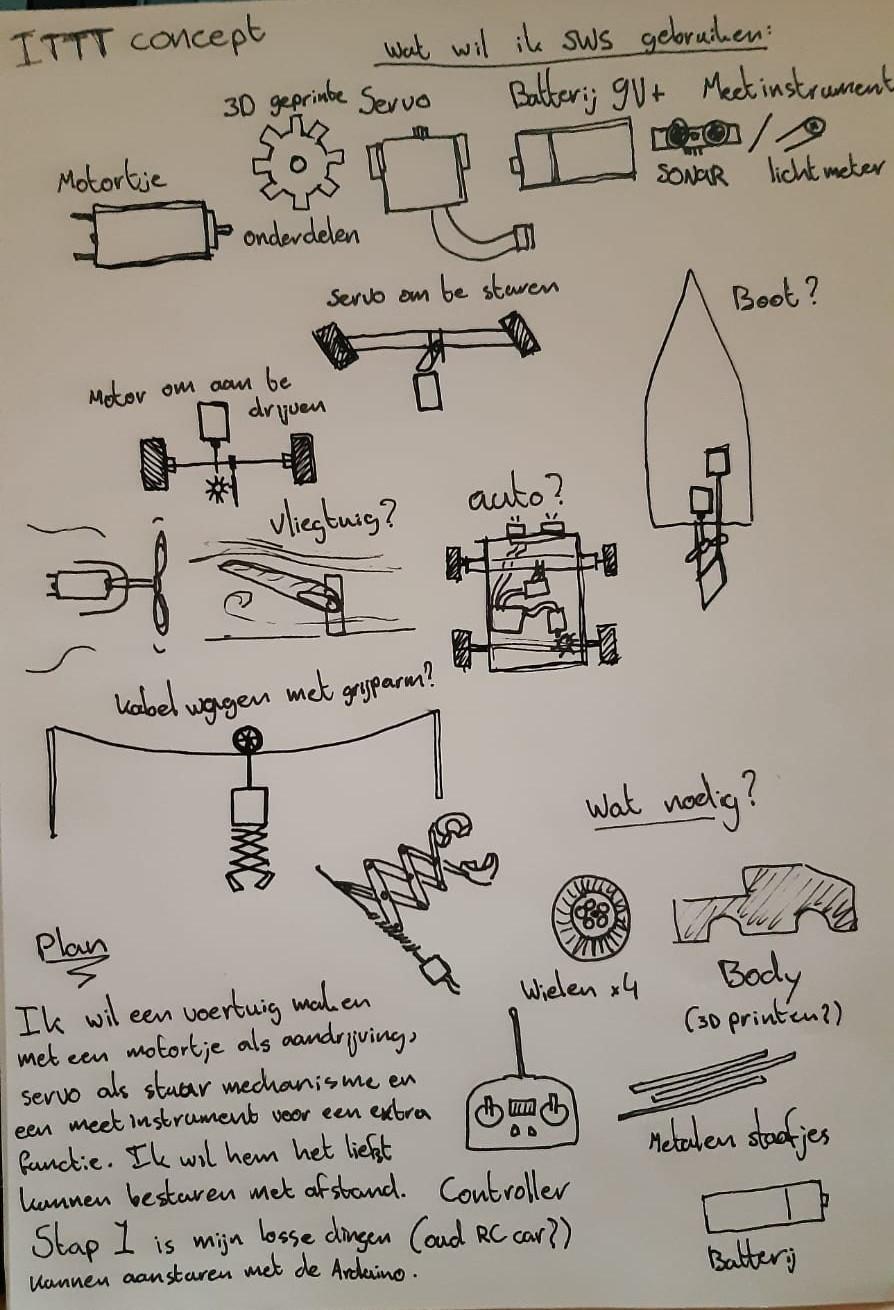 ITTT concept
Wat wil ik sws gebruiken:
3D geprinte
Servo
Batterij 9V+
Meetinstrument
Motortje
onderdelen
SONAR
lichtmeter
Servo om te sturen
Boot?
Motor om aan te
drijven
vliegtuig?
auto?
kabel wagen met grijparm?
Wat nodig?
Plan
Wielen x4
Body
(3D printen?)
Ik wil een voertuig maken
met een motortje als aandrijving,
servo als stuur mechanisme en
een meetinstrument voor een extra
functie. Ik wil hem het liefst
kunnen besturen met afstand.
Controller
Metalen staafjes
Stap 1 is mijn losse dingen (oud RC car?)
kunnen aansturen met de Arduino.
Batterij